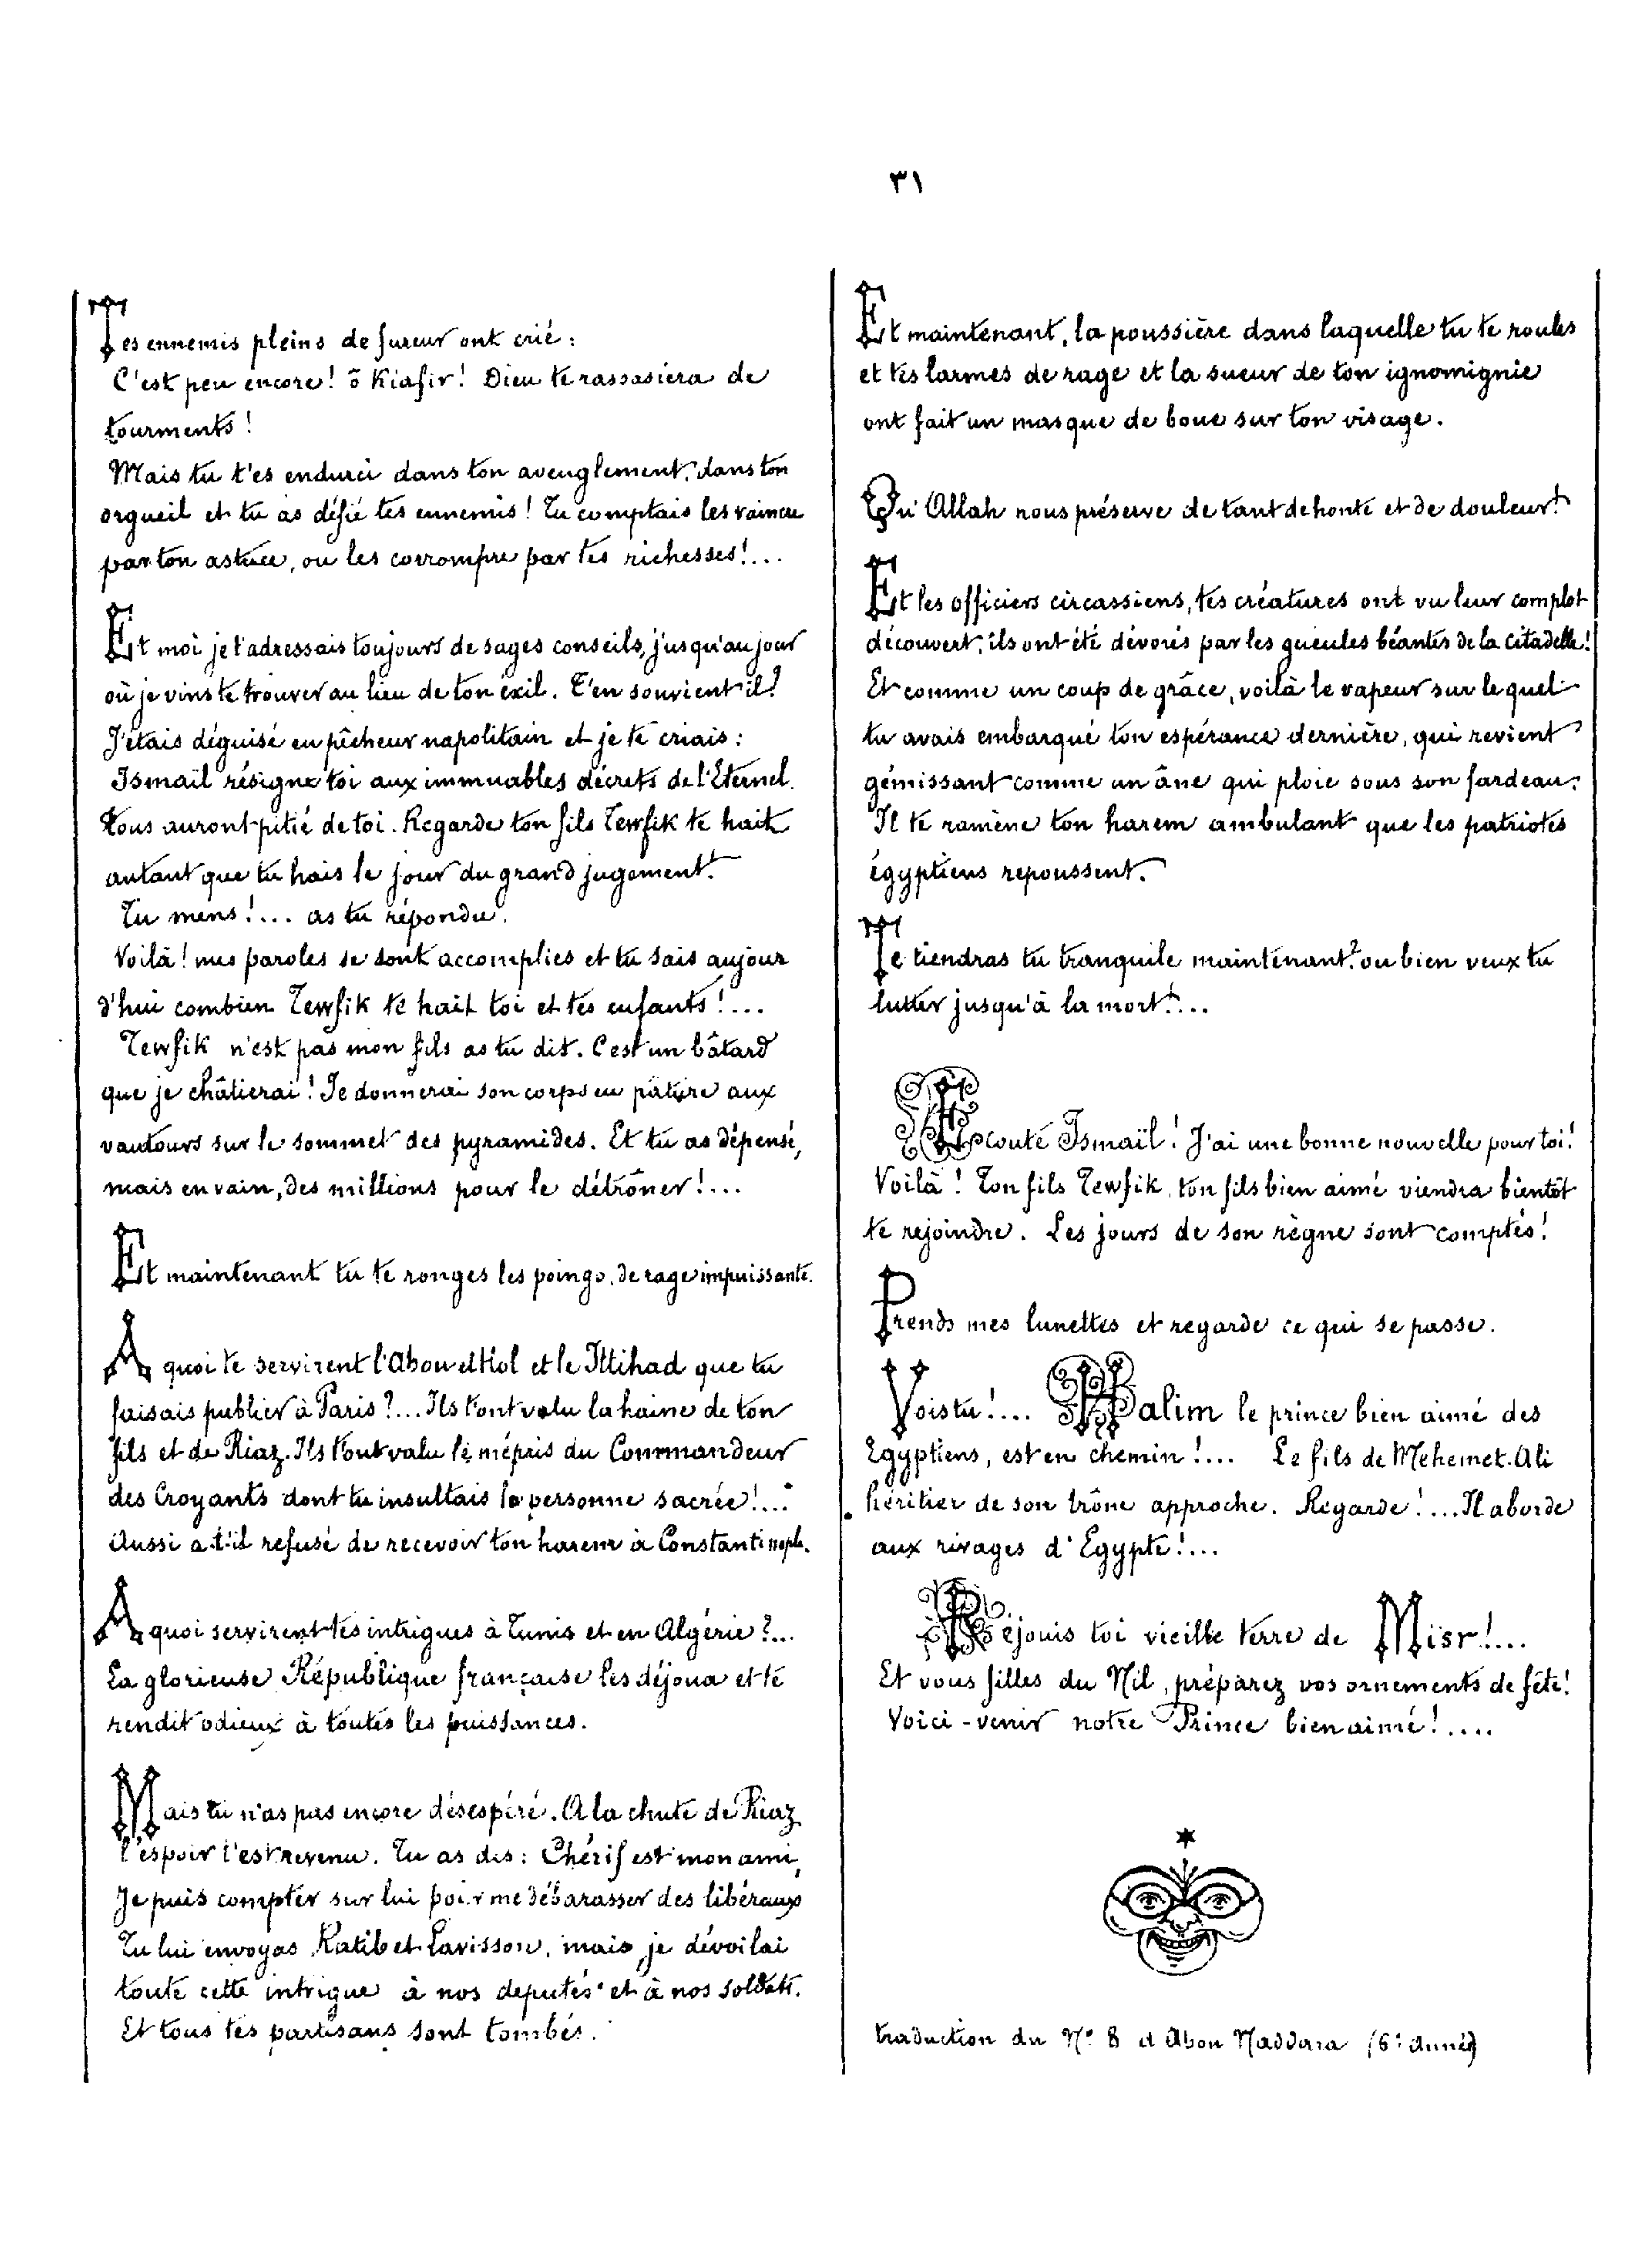 ٣١
Tes ennemis pleins de fureur ont crié :
C'est peu encore ! ô Kiafir ! Dieu te rassasiera de
tourments !
Mais tu t'es endurci dans ton aveuglement, dans ton
orgueil et tu as défié tes ennemis ! Tu comptais les vaincre
par ton astuce, ou les corrompre par tes richesses !...
Et moi je t'adressais toujours de sages conseils, jusqu'au jour
où je vins te trouver au lieu de ton éxil. T'en souvient il ?
J'étais déguisé en pêcheur napolitain et je te criais :
Ismaïl résigne toi aux immuables décrets de l'Eternel.
tous auront pitié de toi. Regarde ton fils Tewfik te hait
autant que tu hais le jour du grand jugement !
Tu mens !... as tu répondu.
Voilà ! mes paroles se sont accomplies et tu sais aujour
d'hui combien Tewfik te hait toi et tes enfants !...
Tewfik n'est pas mon fils as tu dit. C'est un bâtard
que je châtierai ! Je donnerai son corps en pâture aux
vautours sur le sommet des pyramides. Et tu as dépensé,
mais en vain, des millions pour le détrôner !...
Et maintenant tu te ronges les poings, de rage impuissante.
A quoi te servirent l'Abou el Hol et le Ittihad que tu
faisais publier à Paris ?... Ils t'ont valu la haine de ton
fils et de Riaz. Ils t'ont valu le mépris du Commandeur
des Croyants dont tu insultais la personne sacrée !...
Aussi a t'il refusé de recevoir ton harem à Constantinople.
A quoi servirent tes intrigues à Tunis et en Algérie ?...
La glorieuse République française les déjoua et te
rendit odieux à toutes les puissances.
Mais tu n'as pas encore désespéré. A la chute de Riaz
l'espoir t'est revenu. Tu as dis : Chérif est mon ami,
Je puis compter sur lui pour me débarasser des libéraux
Tu lui envoyas Ratib et Lavisson, mais je dévoilai
toute cette intrigue à nos deputés et à nos soldats.
Et tous tes partisans sont tombés.
Et maintenant, la poussière dans laquelle tu te roules
et tes larmes de rage et la sueur de ton ignomignie
ont fait un masque de boue sur ton visage.
Qu'Allah nous préserve de tant de honte et de douleur !
Et les officiers circassiens, tes créatures ont vu leur complot
découvert, ils ont été dévorés par les gueules béantes de la citadelle !
Et comme un coup de grâce, voilà le vapeur sur lequel
tu avais embarqué ton espérance dernière, qui revient
gémissant comme un âne qui ploie sous son fardeau.
Il te ramène ton harem ambulant que les patriotes
égyptiens repoussent.
Te tiendras tu tranquile maintenant ? ou bien veux tu
lutter jusqu'à la mort !...
Ecoute Ismaïl ! J'ai une bonne nouvelle pour toi !
Voilà ! Ton fils Tewfik, ton fils bien aimé viendra bientôt
te rejoindre. Les jours de son règne sont comptés !
Prends mes lunettes et regarde ce qui se passe.
Vois tu !... Halim le prince bien aimé des
Egyptiens, est en chemin !... Le fils de Mehemet-Ali
héritier de son trône approche. Regarde !... Il aborde
aux rivages d'Egypte !...
Réjouis toi vieille terre de Misr !...
Et vous filles du Nil, préparez vos ornements de fête !
Voici-venir notre Prince bien aimé !....
traduction du N° 8 d Abou Naddara (6e Année)